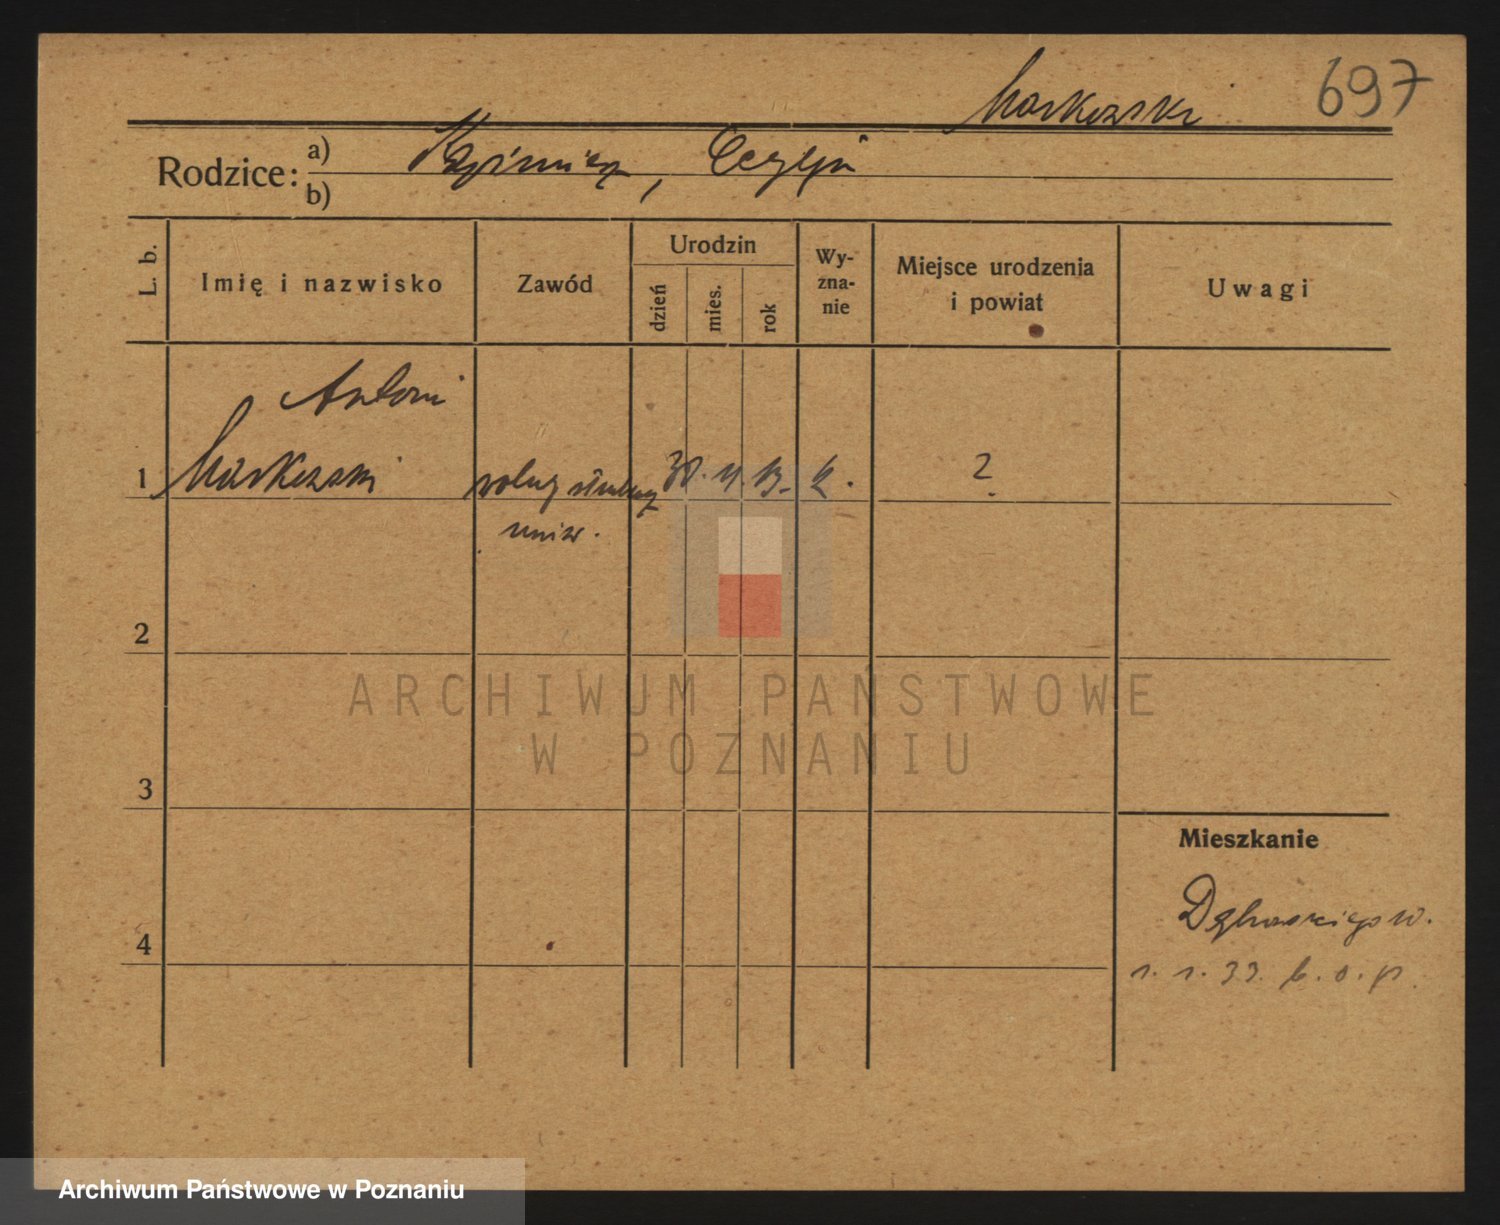 Markowski 697
Rodzice: a) Kazimierz, Cecylja
b)
L. b.
Imię i nazwisko
Zawód
Urodzin
dzień
mies.
rok
Wy-
zna-
nie
Miejsce urodzenia
i powiat
Uwagi
Antoni
1 Markowski wolny słuchacz 30. 4. 13. k. ?
uniw.
2
ARCHIWUM PAŃSTWOWE
W POZNANIU
3
Mieszkanie
4
1. 1. 33. b. o. p.
Archiwum Państwowe w Poznaniu